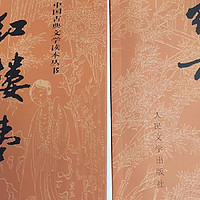 中国古典文学读本丛书
红楼梦
人民文学出版社